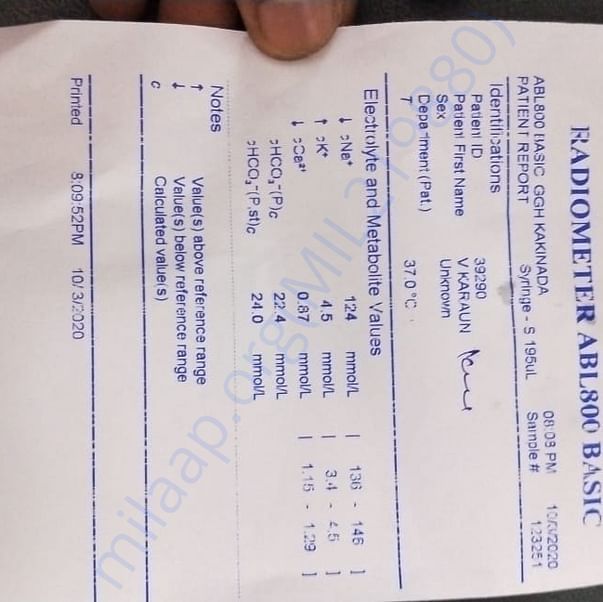 RADIOMETER ABL800 BASIC
ABL800 BASIC GGH KAKINADA 08:08 PM 10/3/2020
PATIENT REPORT Syringe - S 195uL Sample # 123251
Identifications
Patient ID 39290
Patient First Name V KARAUN
Sex Unknown
Department (Pat.)
T 37.0 °C
Electrolyte and Metabolite Values
↓ cNa⁺ 124 mmol/L [ 136 - 146 ]
↑ cK⁺ 4.5 mmol/L [ 3.4 - 4.5 ]
↓ cCa²⁺ 0.87 mmol/L [ 1.15 - 1.29 ]
cHCO₃⁻(P)c 22.4 mmol/L
cHCO₃⁻(P,st)c 24.0 mmol/L
Notes
↑ Value(s) above reference range
↓ Value(s) below reference range
c Calculated value(s)
Printed 8:09:52PM 10/3/2020
milaap.org